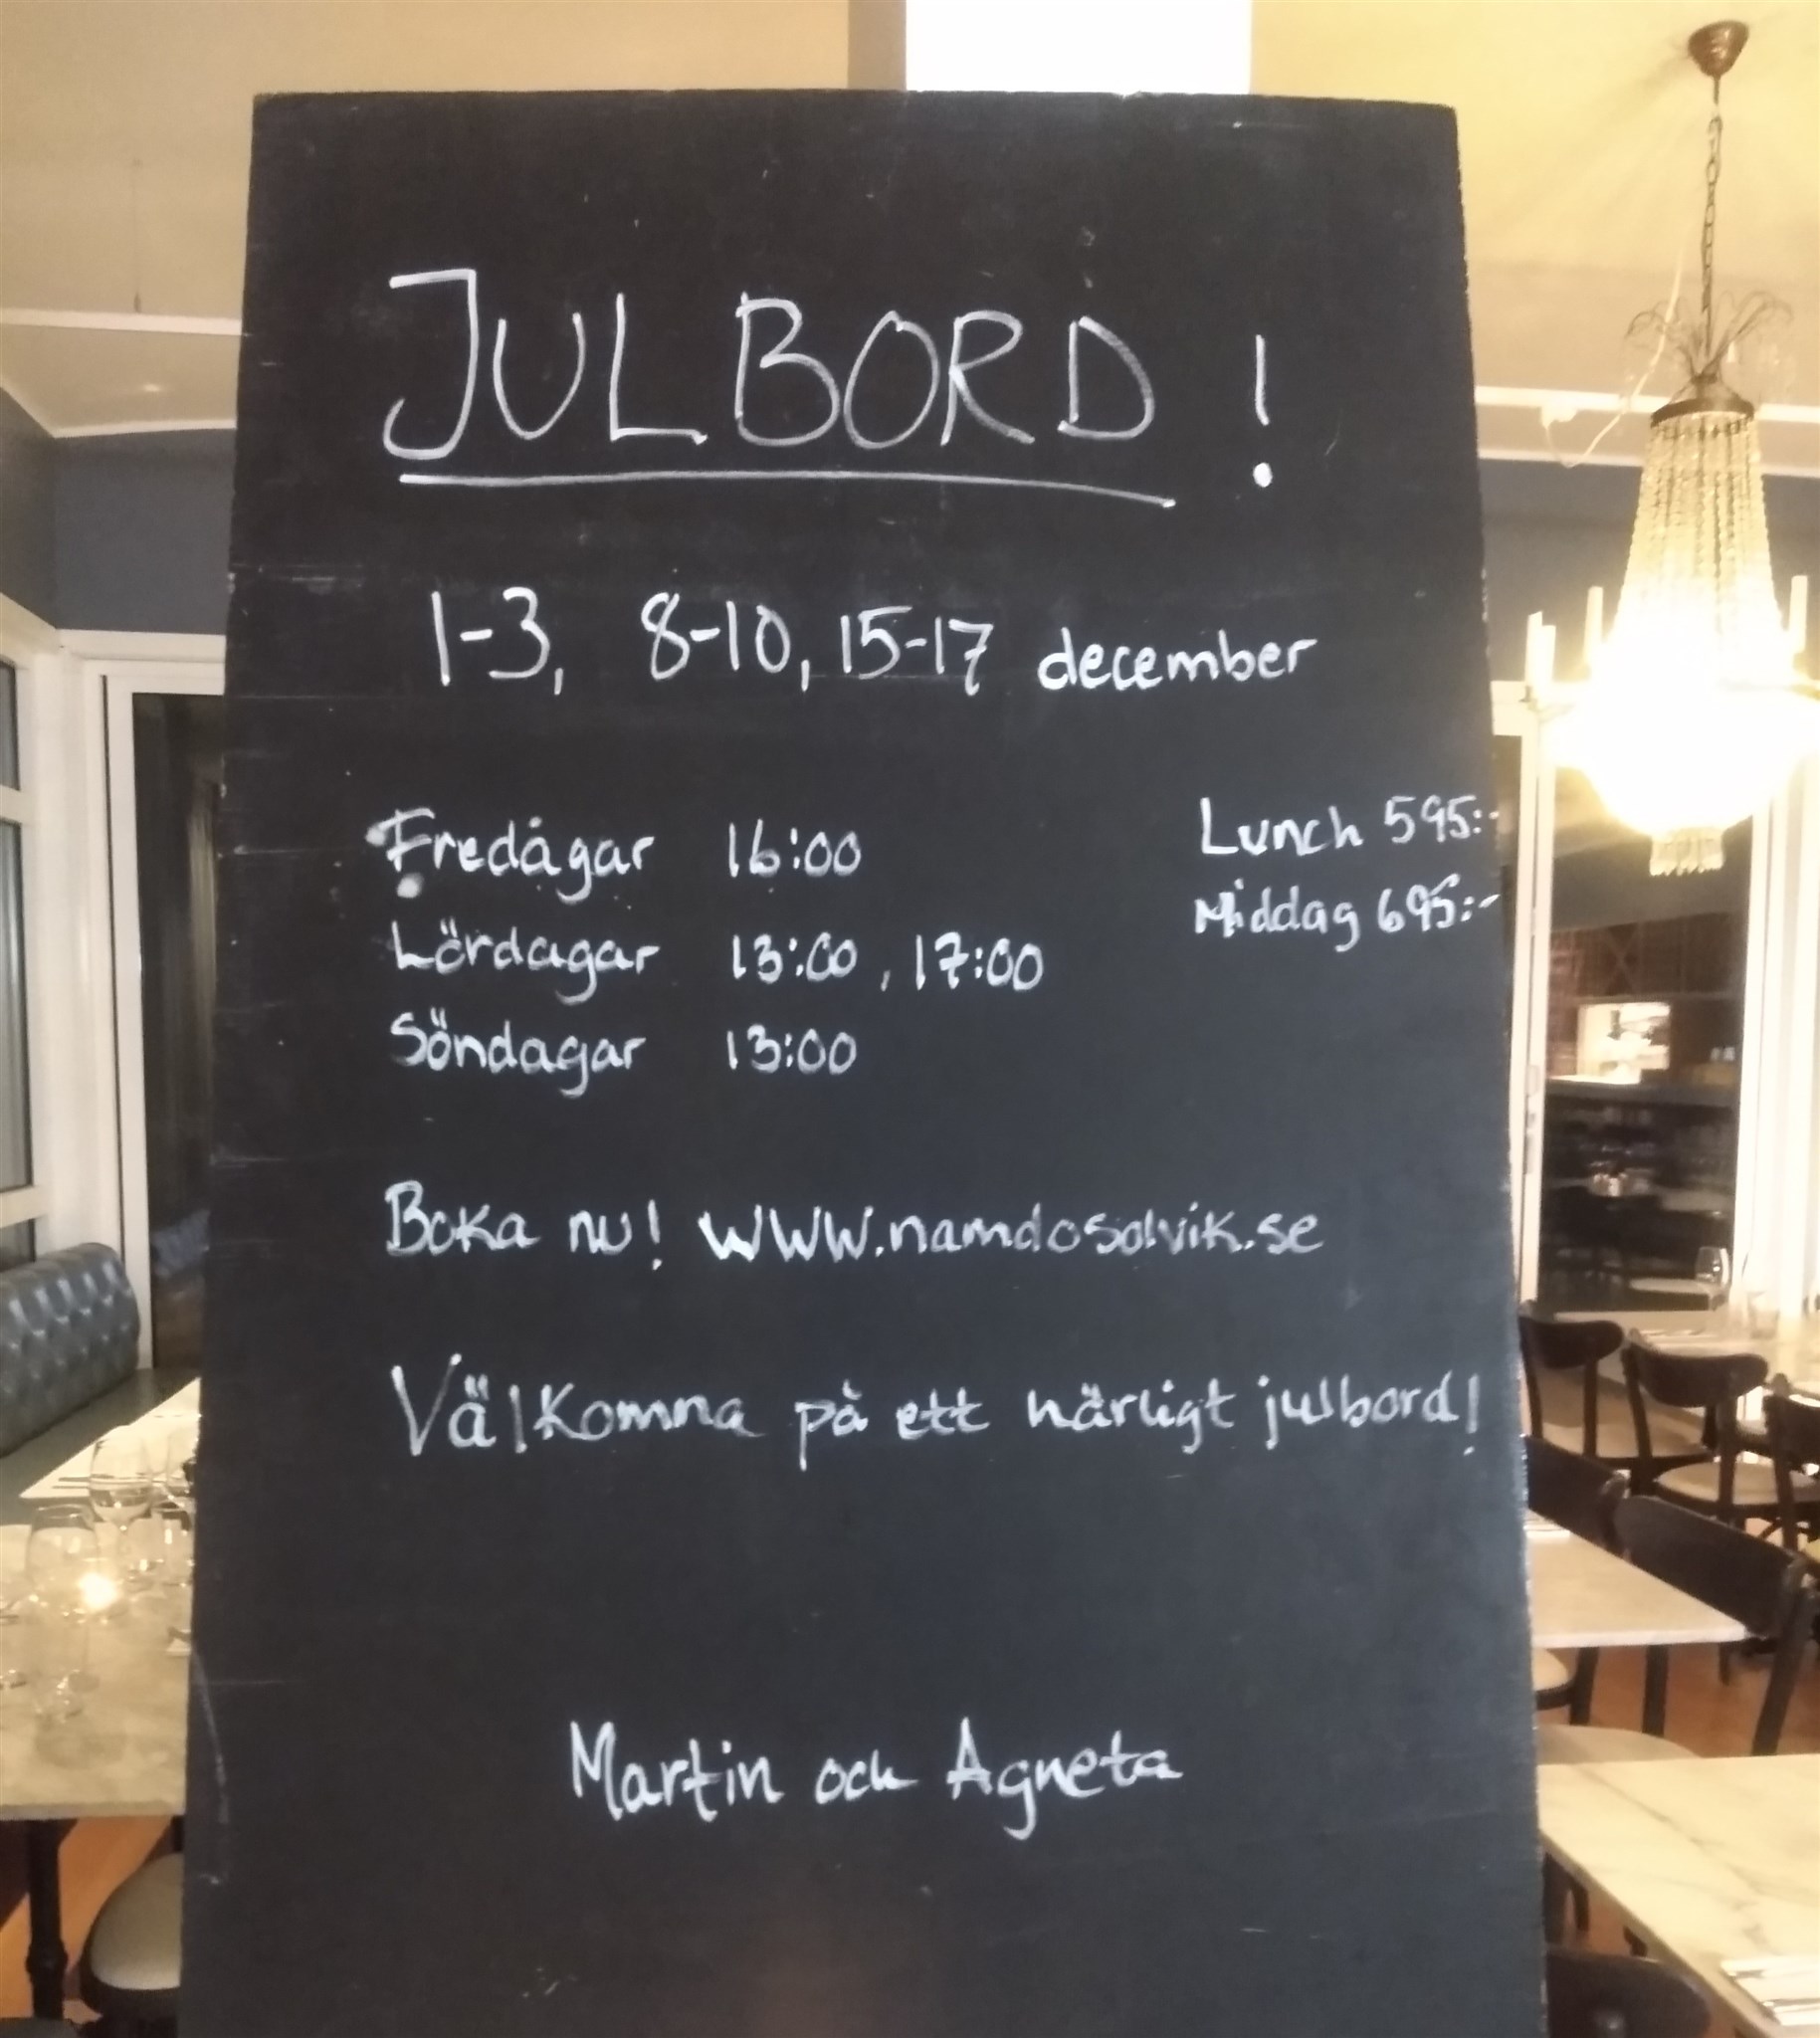 JULBORD!
1-3, 8-10, 15-17 december
Fredagar 16:00
Lunch 595:-
Middag 695:-
Lördagar 13:00, 17:00
Söndagar 13:00
Boka nu! www.namdosolvik.se
Välkomna på ett härligt julbord!
Martin och Agneta